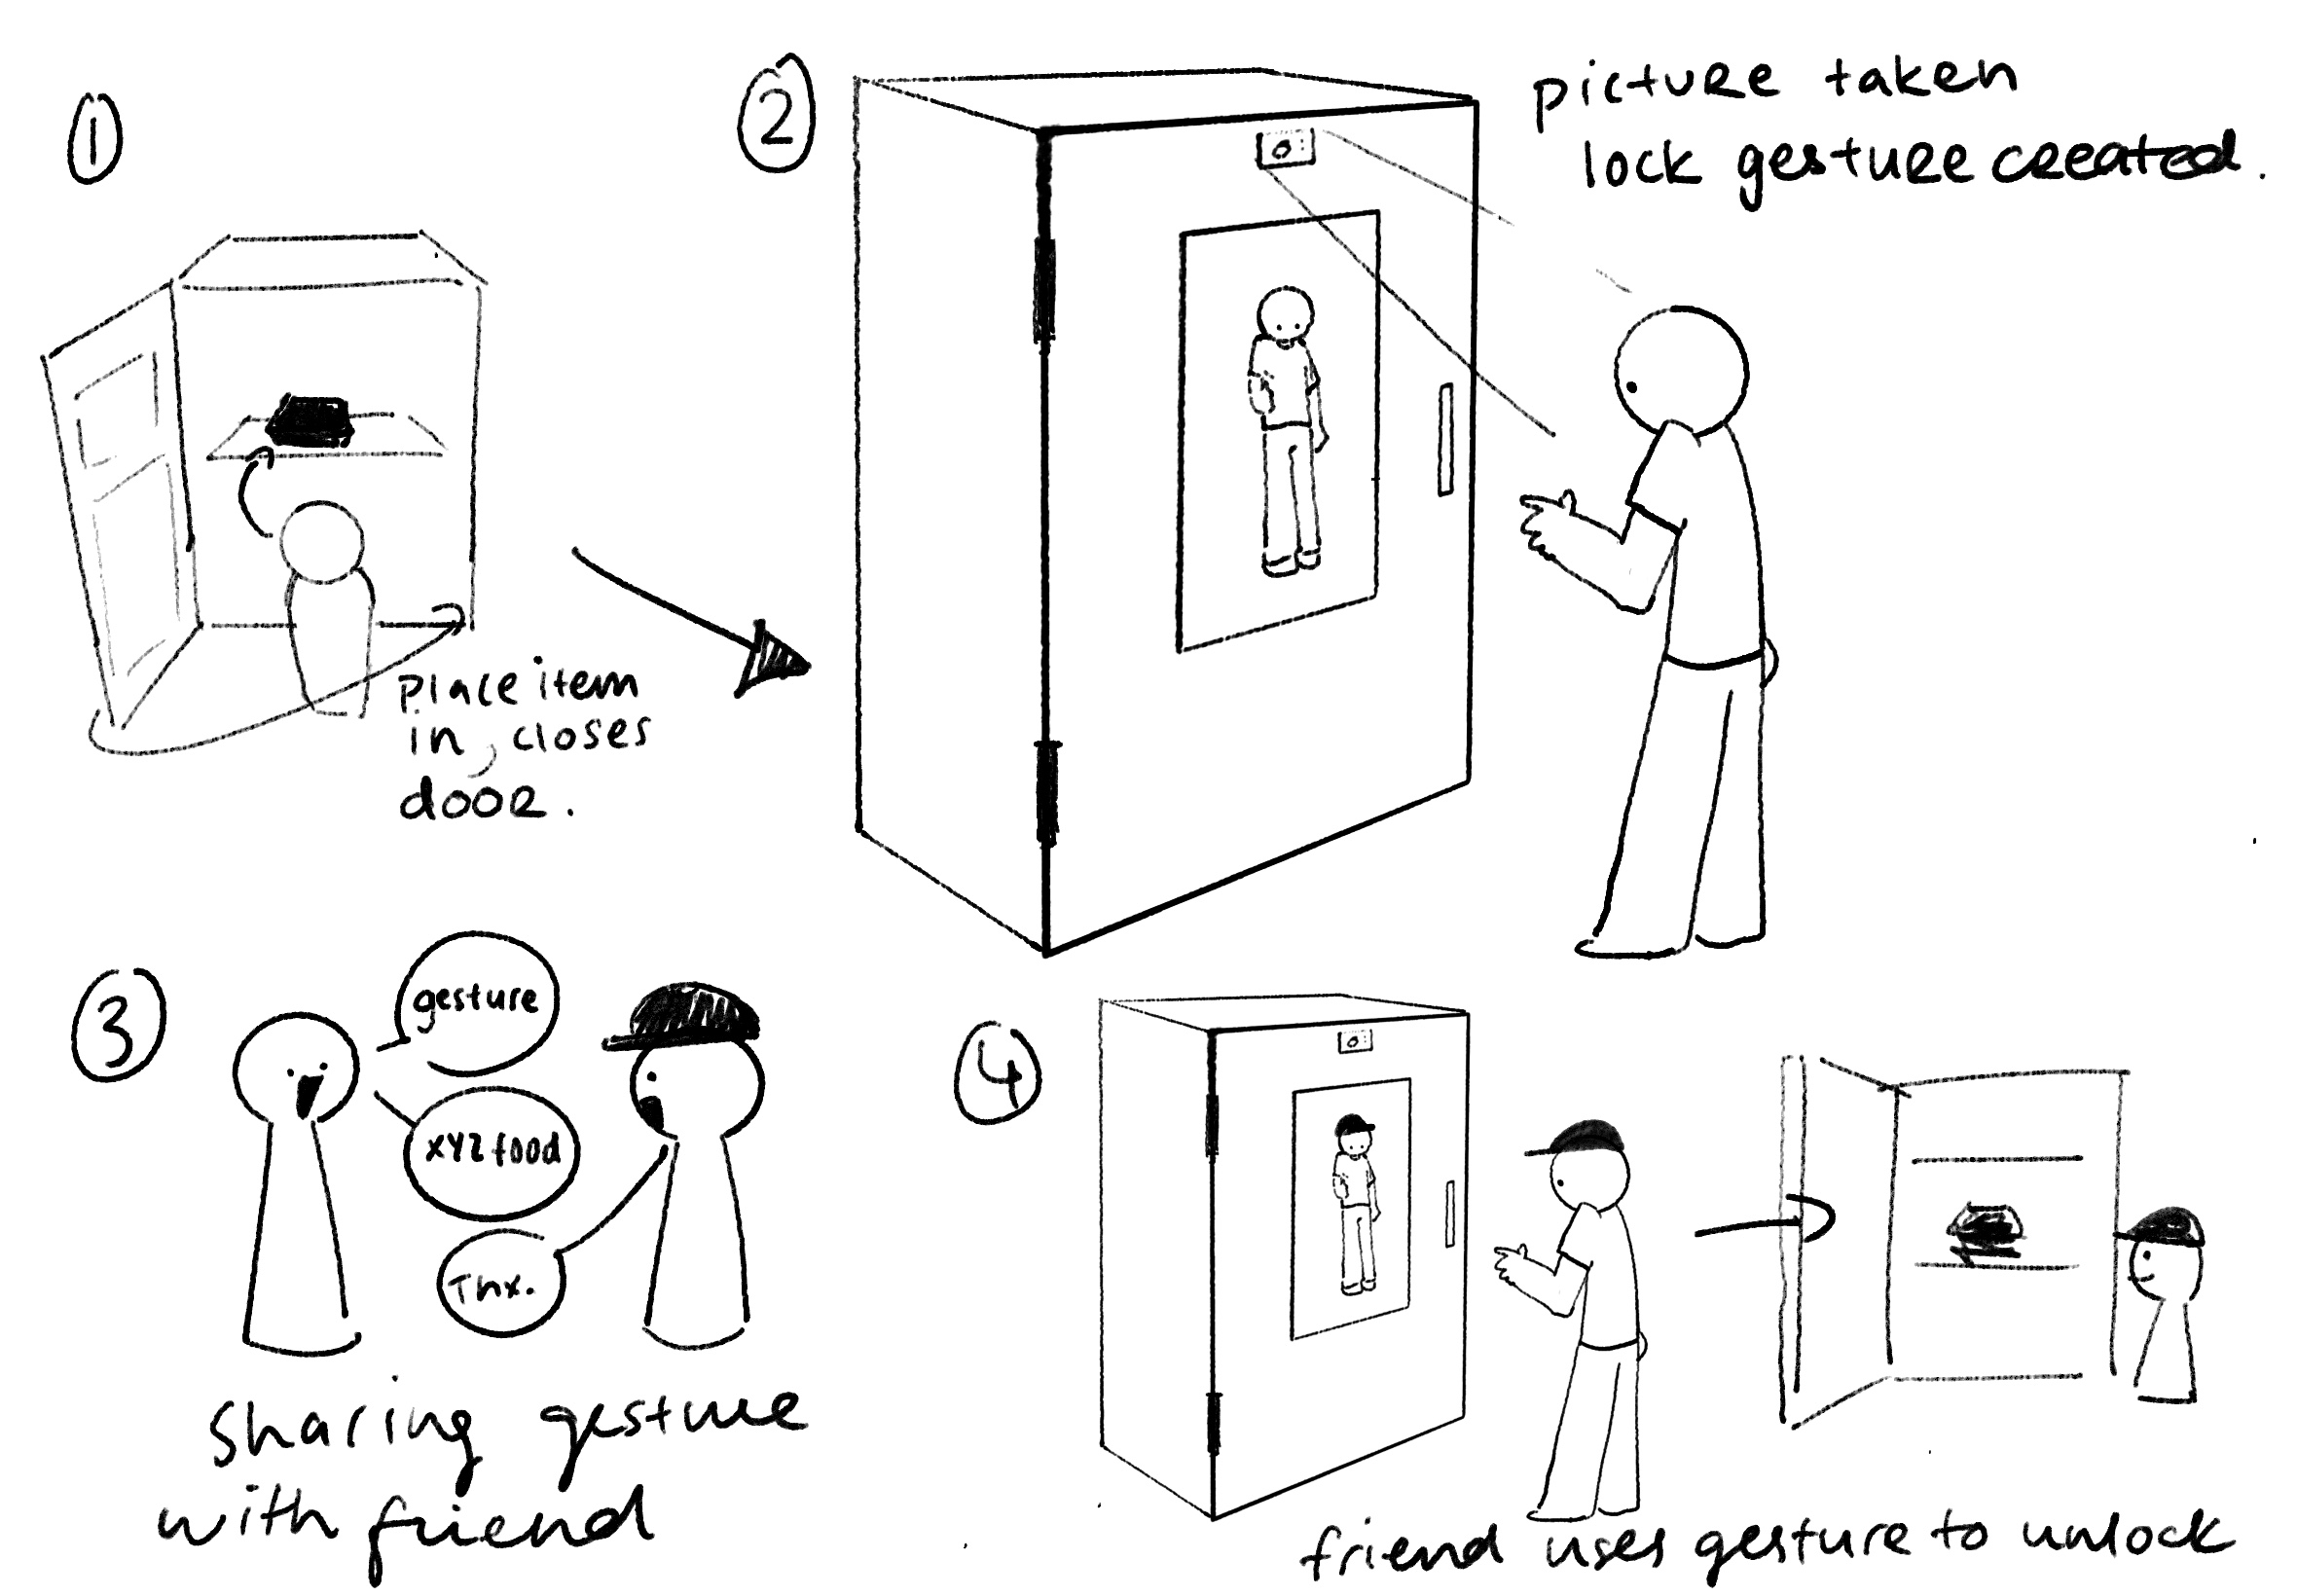 1
place item
in, closes
door.
2
picture taken
lock gesture created.
3
gesture
xyz food
Thx.
sharing gesture
with friend
4
friend uses gesture to unlock